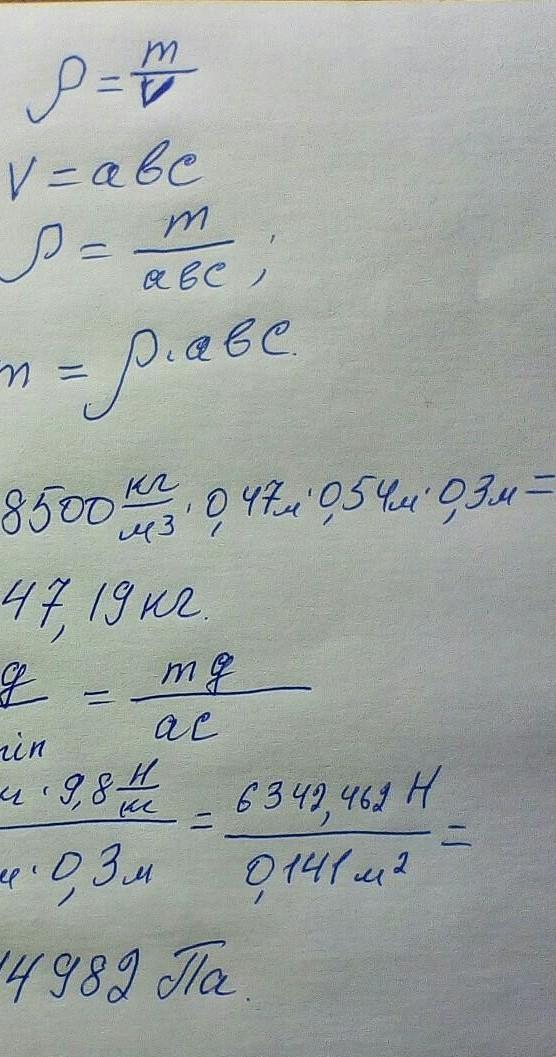 ρ = m/V
V = abc
ρ = m/abc ;
m = ρ·abc.
8500 кг/м3 · 0,47м · 0,54м · 0,3м =
47,19 кг.
g/min = mg/ac
м · 9,8 Н/м / м · 0,3м = 6342,462 Н / 0,141 м² =
14982 Па.